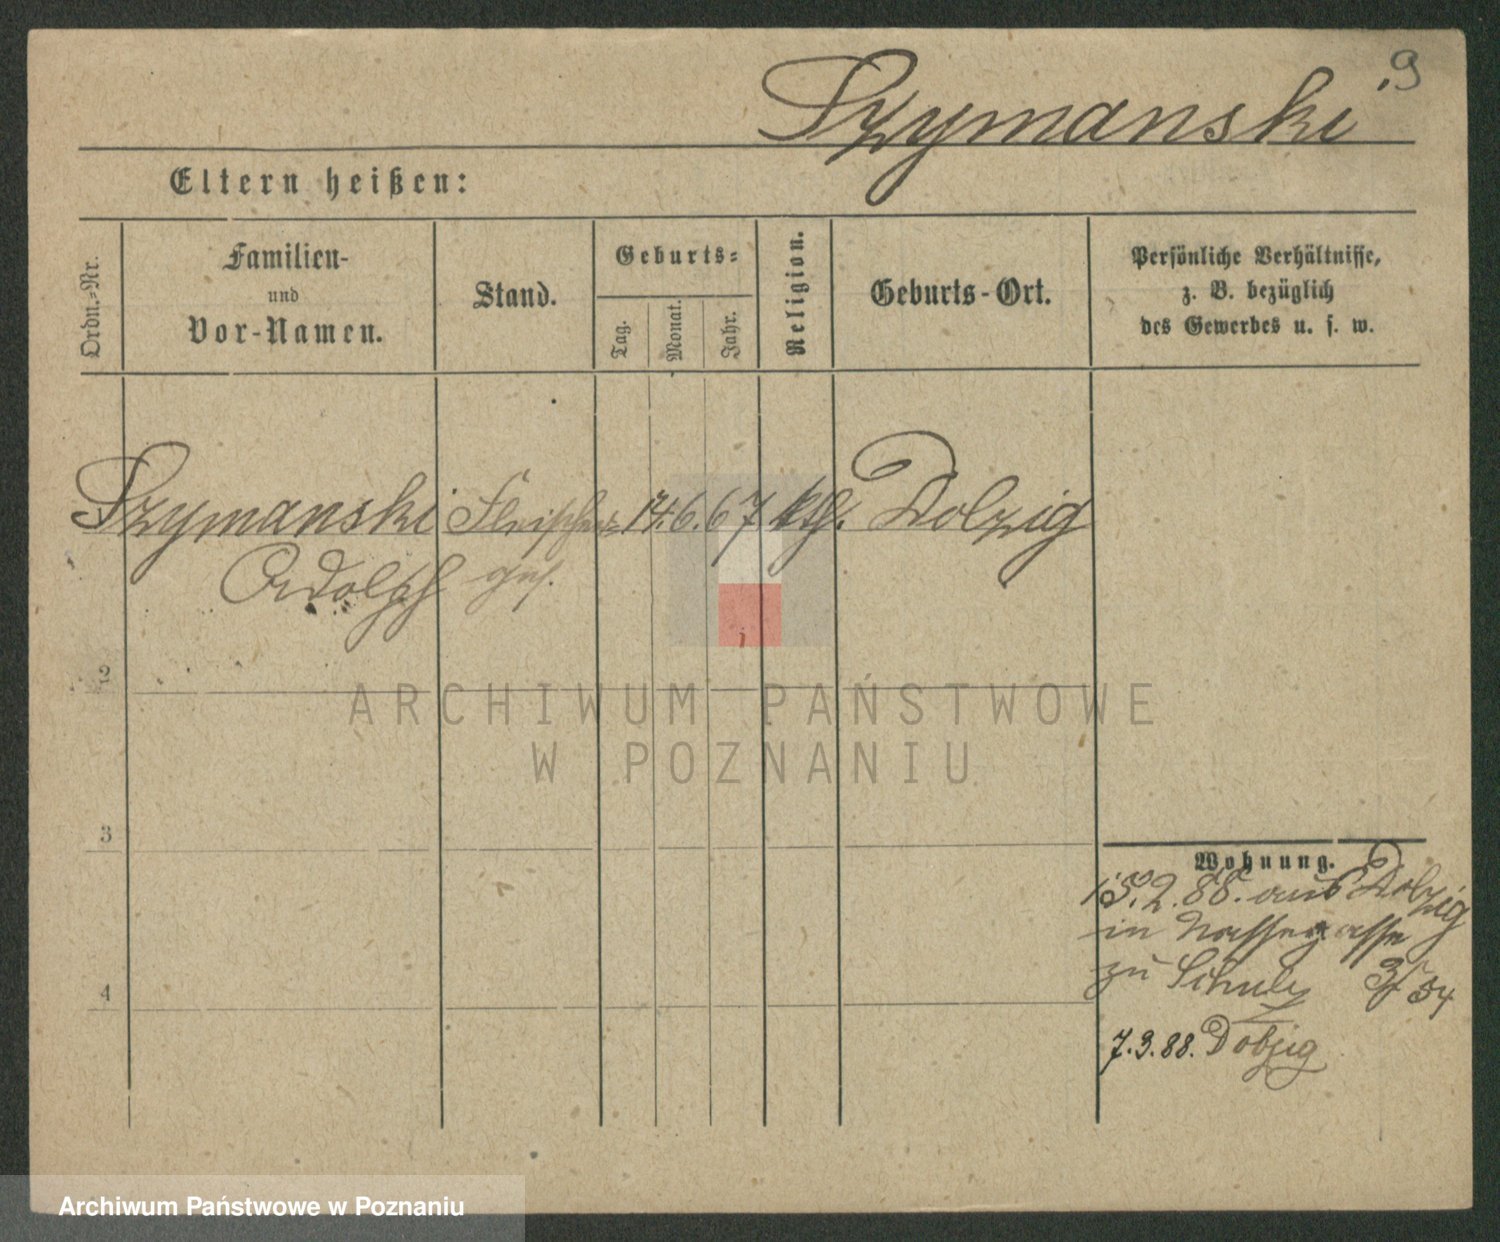 9
Szymanski
Eltern heißen:
Ordn.-Nr.
Familien-
und
Vor-Namen.
Stand.
Geburts-
Tag.
Monat.
Jahr.
Religion.
Geburts-Ort.
Persönliche Verhältnisse,
z. B. bezüglich
des Gewerbes u. s. w.
Szymanski Fleischer- 14. 6. 67 kth. Dolzig
Adolph ges.
2
ARCHIWUM PAŃSTWOWE
W POZNANIU
3
4
Wohnung.
15. 2. 88. aus Dolzig
in Nassegasse
zu Schulz
7. 3. 88. Dolzig
Archiwum Państwowe w Poznaniu